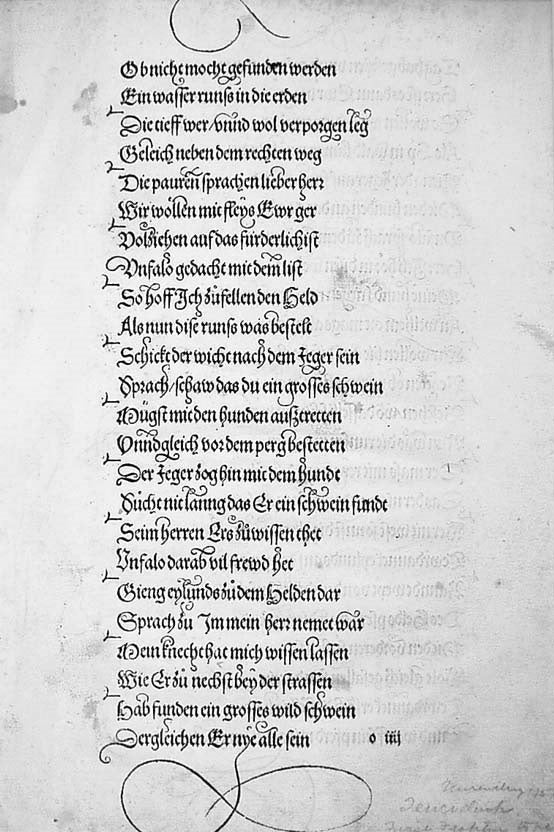 Ob nicht mocht gefunden werden
Ein wasser runss in die erden
Die tieff wer/vnnd wol verporgen leg
Geleich neben dem rechten weg
Die paurën sprachen lieber herr
Wir wöllen mit fleÿs Ewr ger
Volziehen auf das fürderlichist
Vnfalo gedacht mit dem list
So hoff Jch zůfellen den Held
Als nun dise runss was bestelt
Schickt der wicht nach dem Jeger sein
Sprach/schaw das du ein grosses schwein
Mügst mit den hunden ausztretten
Vnnd gleich vor dem perg bestetten
Der Jeger zog hin mit dem hundt
Sücht nit lanng das Er ein schwein fundt
Seim herren Ers zůwissen thet
Vnfalo darab vil frewd het
Gieng eylunds zů dem Helden dar
Sprach zů Im mein herr nemet war
Mein knecht hat mich wissen lassen
Wie Er zů nechst beÿ der strassen
Hab funden ein grosses wild schwein
Dergleichen Er nÿe alle sein
o iiij